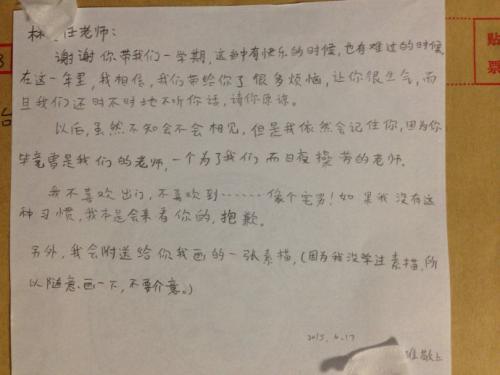 林 任老师:
谢谢你带我们一学期,这其中有快乐的时候,也有难过的时候
在这一年里,我相信,我们带给你了很多烦恼,让你很生气,而
且我们还时不时地不听你话,请你原谅。
以后,虽然不知会不会相见,但是我依然会记住你,因为你
毕竟曾是我们的老师,一个为了我们而日夜操劳的老师。
我不喜欢出门,不喜欢到……像个宅男!如果我没有这
种习惯,我市是会来看你的,抱歉。
另外,我会附送给你我画的一张素描,(因为我没学过素描,所
以随意画一下,不要介意。)
2015.6.17
敬上
贴
票